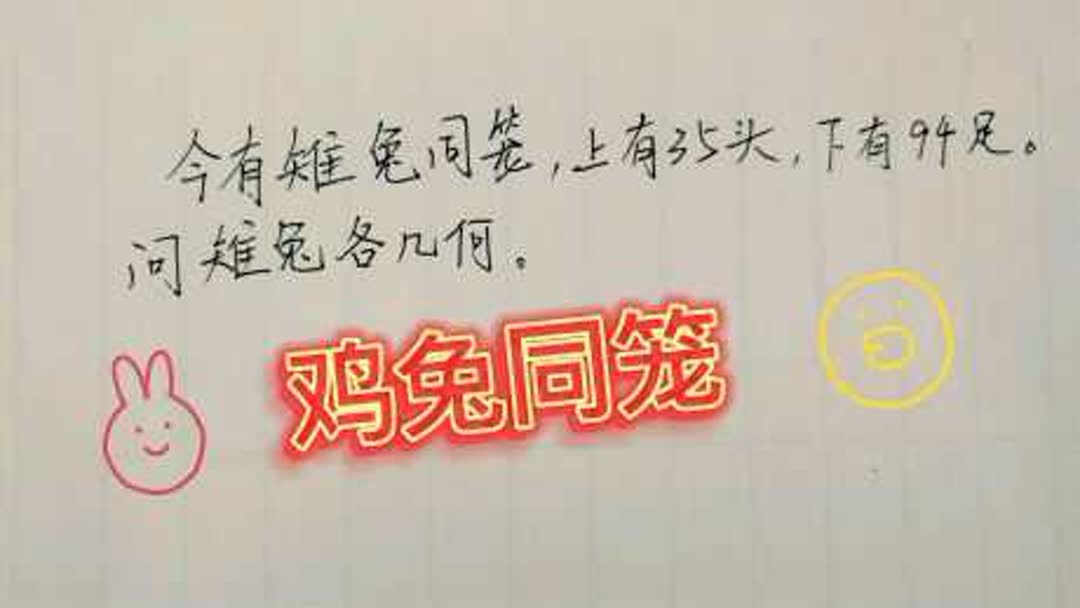 今有雉兔同笼,上有35头,下有94足。
问雉兔各几何。
鸡兔同笼